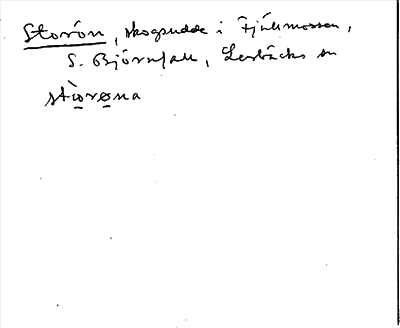 Storön, skogsudde i Fjälmossen,
S. Björnfall, Lerbäcks sn
stòrøna